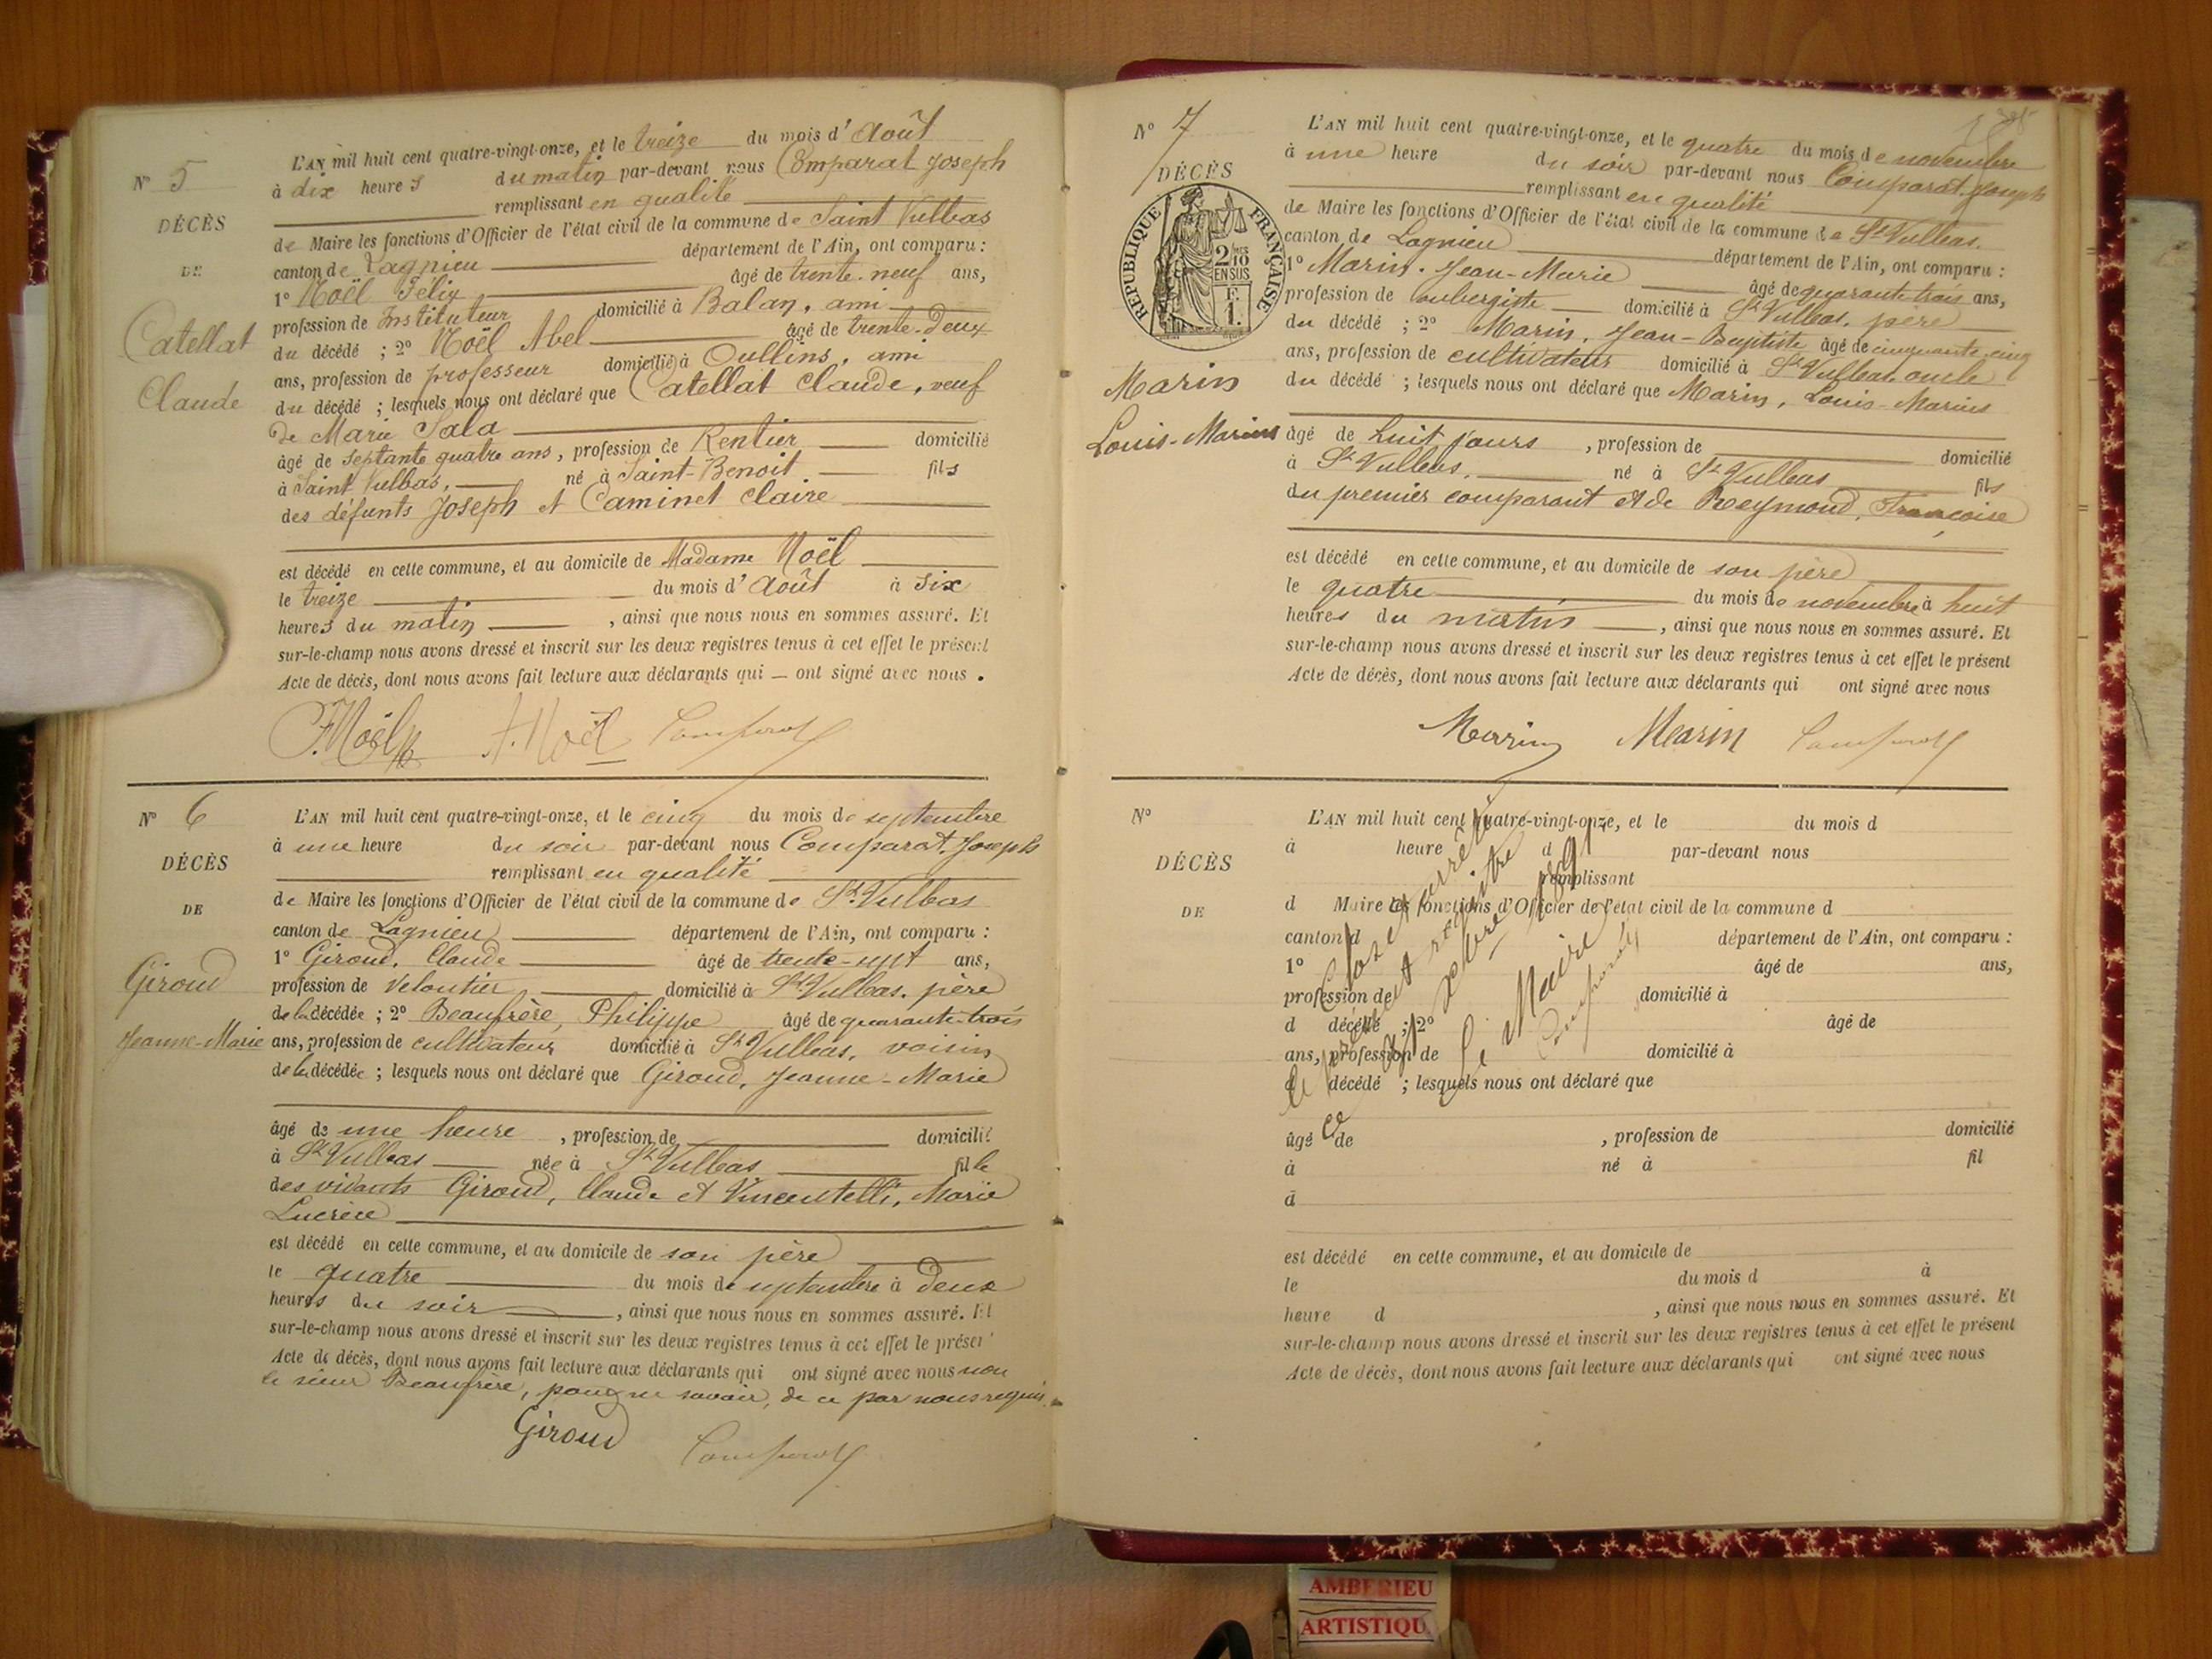 N° 5
DÉCÈS
DE
Catellat
Claude
L'AN mil huit cent quatre-vingt-onze, et le treize du mois d'Août
à dix heures du matin par-devant nous Comparat Joseph
remplissant en qualité
de Maire les fonctions d'Officier de l'état civil de la commune de Saint Vulbas
canton de Lagnieu département de l'Ain, ont comparu :
1° Noël Félix âgé de trente-neuf ans,
profession de Instituteur domicilié à Balan, ami
du décédé ; 2° Noël Abel âgé de trente-deux
ans, profession de professeur domicilié à Oullins, ami
du décédé ; lesquels nous ont déclaré que Catellat Claude, veuf
de Marie Sala
âgé de septante quatre ans, profession de Rentier domicilié
à Saint Vulbas, né à Saint-Benoit fils
des défunts Joseph et Caminet Claire
est décédé en cette commune, et au domicile de Madame Noël
le treize du mois d'Août à six
heures du matin, ainsi que nous nous en sommes assuré. Et
sur-le-champ nous avons dressé et inscrit sur les deux registres tenus à cet effet le présent
Acte de décès, dont nous avons fait lecture aux déclarants qui — ont signé avec nous.
F. Noël A. Noël Comparat
N° 6
DÉCÈS
DE
Giroud
Jeanne-Marie
L'AN mil huit cent quatre-vingt-onze, et le cinq du mois de septembre
à une heure du soir par-devant nous Comparat Joseph
remplissant en qualité
de Maire les fonctions d'Officier de l'état civil de la commune de St Vulbas
canton de Lagnieu département de l'Ain, ont comparu :
1° Giroud, Claude âgé de trente-sept ans,
profession de Veloutier domicilié à St Vulbas, père
de la décédée ; 2° Beaufrère, Philippe âgé de quarante-trois
ans, profession de cultivateur domicilié à St Vulbas, voisin
de la décédée ; lesquels nous ont déclaré que Giroud, Jeanne-Marie
âgé de une heure, profession de domicilié
à St Vulbas née à St Vulbas fille
des vivants Giroud, Claude et Vincentelli, Marie
Lucrèce
est décédé en cette commune, et au domicile de son père
le quatre du mois de septembre à deux
heures du soir, ainsi que nous nous en sommes assuré. Et
sur-le-champ nous avons dressé et inscrit sur les deux registres tenus à cet effet le présent
Acte de décès, dont nous avons fait lecture aux déclarants qui ont signé avec nous non
le sieur Beaufrère, pour ne savoir, de ce par nous requis.
Giroud Comparat
N° 7
DÉCÈS
REPUBLIQUE FRANÇAISE
2/10 EN SUS
F. 1.
Marin
Louis-Marius
L'AN mil huit cent quatre-vingt-onze, et le quatre du mois de novembre
à une heure du soir par-devant nous Comparat Joseph
remplissant en qualité
de Maire les fonctions d'Officier de l'état civil de la commune de St Vulbas.
canton de Lagnieu département de l'Ain, ont comparu :
1° Marin, Jean-Marie âgé de quarante trois ans,
profession de aubergiste domicilié à St Vulbas, père
du décédé ; 2° Marin, Jean-Baptiste âgé de cinquante-cinq
ans, profession de cultivateur domicilié à St Vulbas, oncle
du décédé ; lesquels nous ont déclaré que Marin, Louis-Marius
âgé de huit jours, profession de domicilié
à St Vulbas, né à St Vulbas fils
du premier comparant et de Reymond, Françoise
est décédé en cette commune, et au domicile de son père
le quatre du mois de novembre à huit
heures du matin, ainsi que nous nous en sommes assuré. Et
sur-le-champ nous avons dressé et inscrit sur les deux registres tenus à cet effet le présent
Acte de décès, dont nous avons fait lecture aux déclarants qui ont signé avec nous
Marin Marin Comparat
N°
DÉCÈS
DE
L'AN mil huit cent quatre-vingt-onze, et le du mois d
à heure d par-devant nous
remplissant
d Maire les fonctions d'Officier de l'état civil de la commune d
canton d département de l'Ain, ont comparu :
1° âgé de ans,
profession de domicilié à
d décédé ; 2° âgé de
ans, profession de domicilié à
d décédé ; lesquels nous ont déclaré que
âgé de , profession de domicilié
à né à fil
d
est décédé en cette commune, et au domicile de
le du mois d à
heure d , ainsi que nous nous en sommes assuré. Et
sur-le-champ nous avons dressé et inscrit sur les deux registres tenus à cet effet le présent
Acte de décès, dont nous avons fait lecture aux déclarants qui ont signé avec nous
Clos et arrêté
le présent registre
ce 31 Xbre 1891
Le Maire
Comparat
AMBERIEU
ARTISTIQU